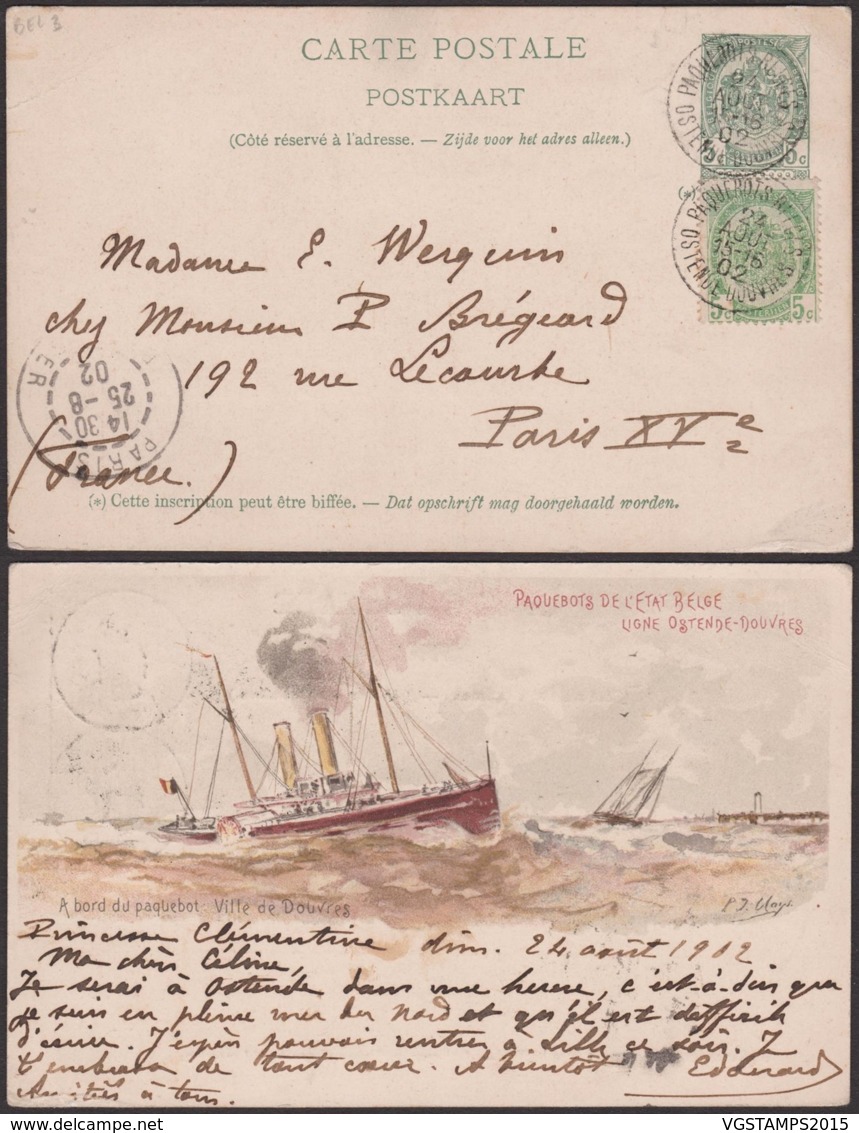 BEL 3
CARTE POSTALE
POSTKAART
(Côté réservé à l'adresse. — Zijde voor het adres alleen.)
PAQUEBOTS
OSTENDE-DOUVRES
24
AOUT
15-16
02
5c 5c
(*)
PAQUEBOTS
OSTENDE-DOUVRES
24
AOUT
15-16
02
5c 5c
Madame E. Werquin
chez Monsieur P. Brégeard
192 rue Lecourbe
Paris XVe
(France.)
PARIS
14 30
25-8
02
(*) Cette inscription peut être biffée. — Dat opschrift mag doorgehaald worden.
PAQUEBOTS DE L'ETAT BELGE
LIGNE OSTENDE-DOUVRES
A bord du paquebot: Ville de Douvres
P. J. Clays
Princesse Clémentine dim. 24 août 1902
Ma chère Céline,
Je serai à Ostende dans une heure, c'est-à-dire que
je suis en pleine mer du Nord et qu'il est difficile
d'écrire. J'espère pouvoir rentrer à Lille ce soir. Je
t'embrasse de tout cœur. A bientôt Edouard
Amitiés à tous.
VGSTAMPS2015